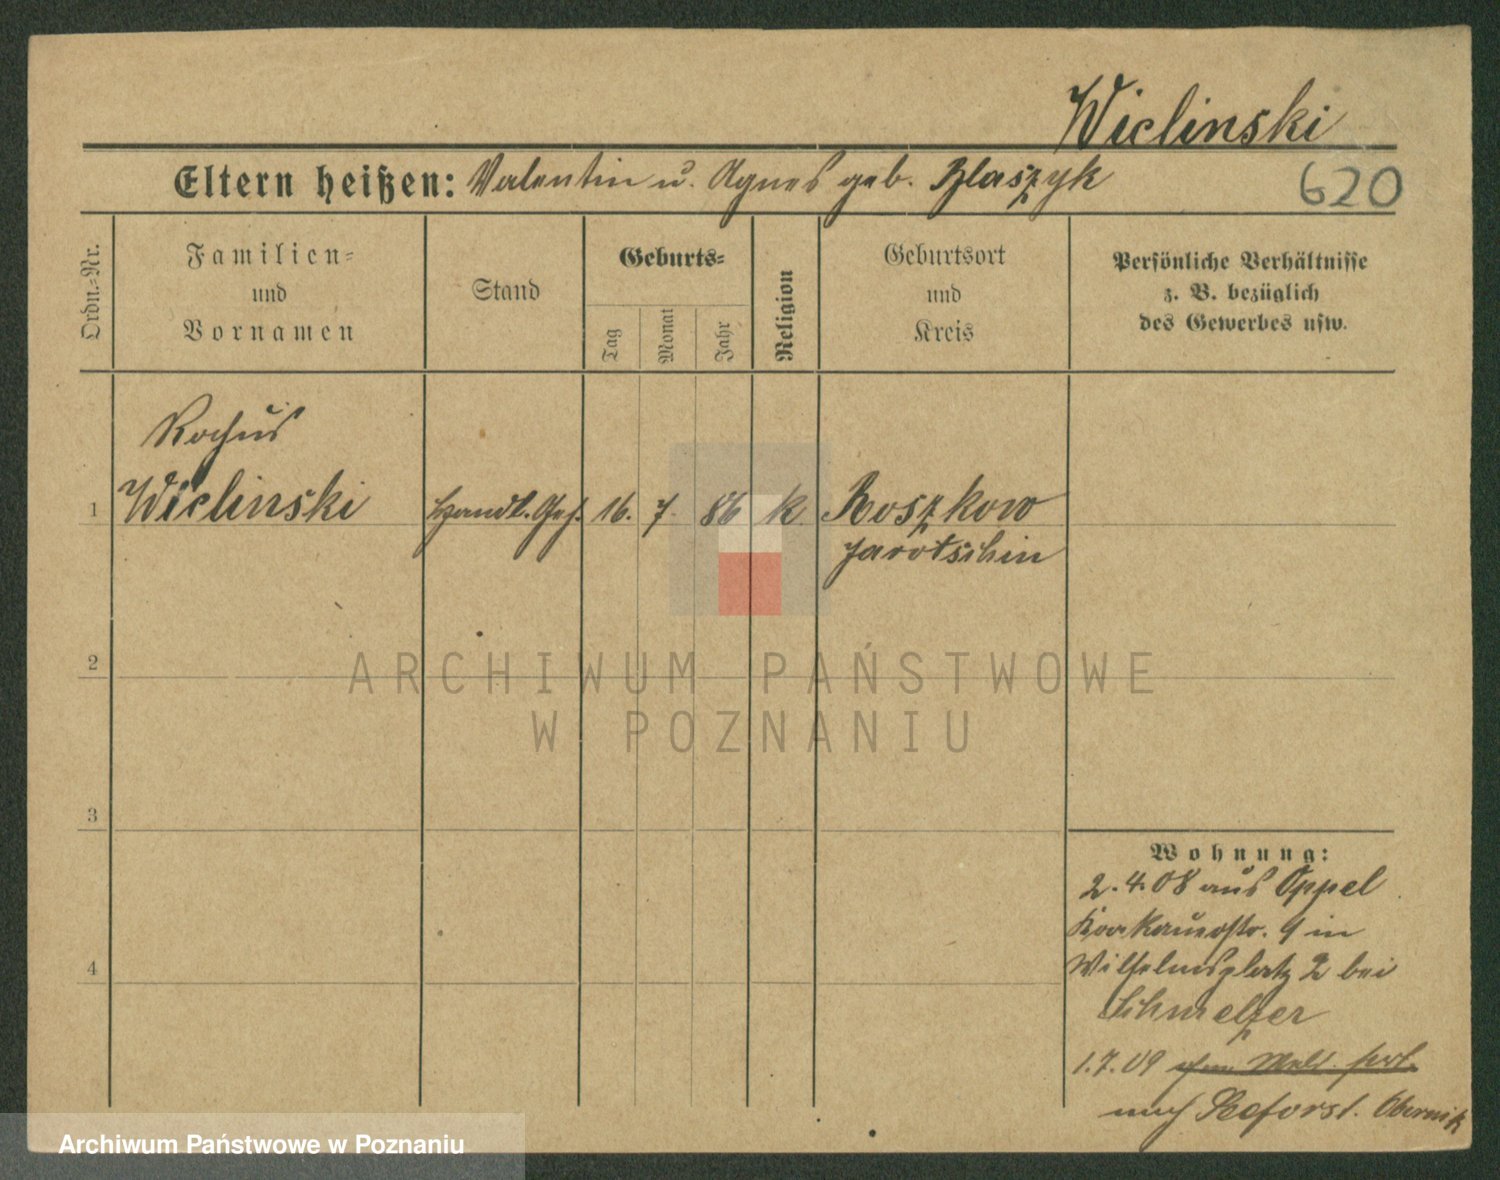 Wiclinski
Eltern heißen: Valentin u. Agnes geb. Blaszyk
620
Ordn.-Nr.
Familien-
und
Vornamen
Stand
Geburts-
Tag
Monat
Jahr
Religion
Geburtsort
und
Kreis
Persönliche Verhältnisse
z. B. bezüglich
des Gewerbes usw.
Rochus
1 Wiclinski Handl. Geh. 16. 7. 86 k Roszkow
Jarotschin
2
3
4
Wohnung:
2.4.08 aus Oppel
Krakauerstr. 9 in
Wilhelmsplatz 2 bei
Schmelzer
1.7.09
nach Seeforst. Obornik
ARCHIWUM PAŃSTWOWE
W POZNANIU
Archiwum Państwowe w Poznaniu